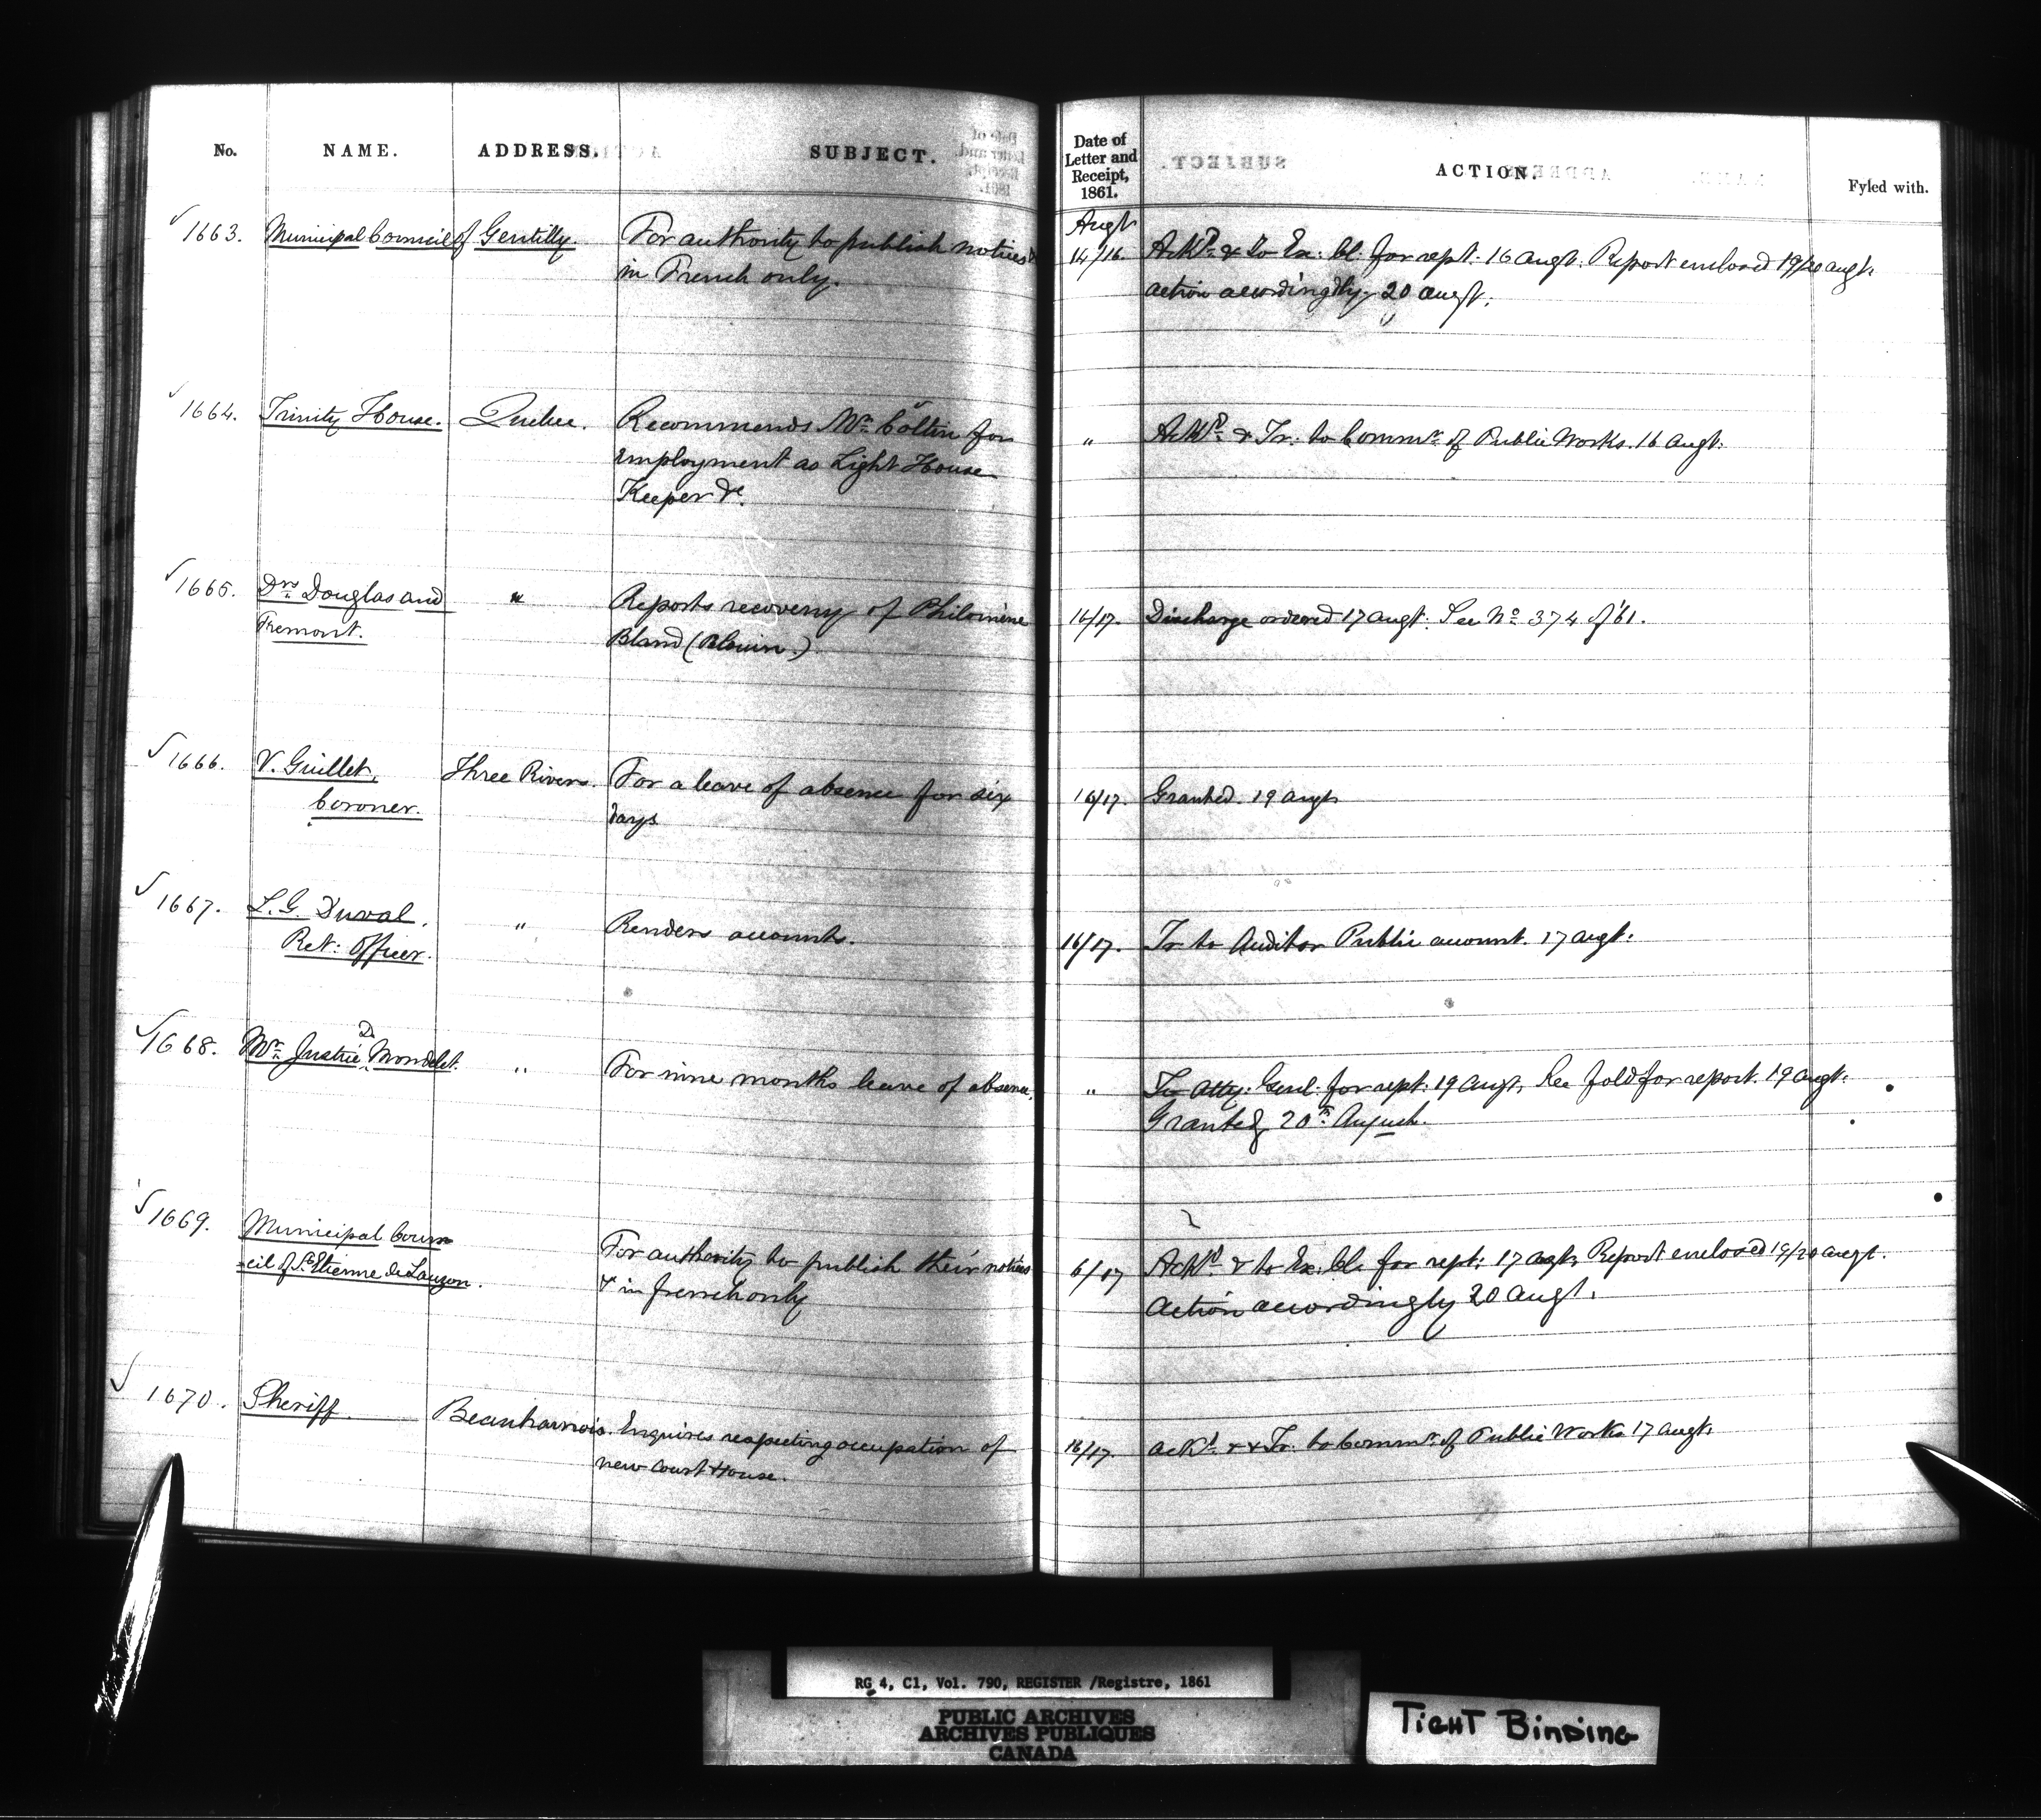 No. NAME. ADDRESS. SUBJECT. Date of Letter and Receipt, 1861. ACTION. Fyled with.
Augt
1663. Municipal Council of Gentilly. For authority to publish notices 14/16. Ackd. & to Ex: Cl: for rept. 16 Augt. Report enclosed 19/20 augt.
in French only. action accordingly 20 augt.
1664. Trinity House. Quebec. Recommends Mr. Coltin for " Ackd. & Tr: to Commr. of Public Works. 16 Augt.
employment as Light House
Keeper &c.
1665. Drs. Douglas and " Reports recovery of Philomène 16/17. Discharge ordered 17 augt. See No. 374 of '61.
Fremont. Bland (Blouin.)
1666. V. Guillet, Three Rivers. For a leave of absence for six 16/17. Granted. 19 augt
Coroner. days
1667. L. G. Duval, " Renders accounts. 16/17. Tr to Auditor Public account. 17 augt.
Ret: Officer.
1668. Mr. Justice D Mondelet. " For nine months leave of absence. " To Atty: Genl. for rept: 19 Augt, See fold for report. 19 augt.
Granted, 20th August.
1669. Municipal Coun- For authority to publish their notices 6/17 Ackd. & to Ex: Cl. for rept: 17 augt. Report enclosed 19/20 augt.
-cil of St. Etienne de Lauzon. & in french only Action accordingly 20 Augt.
1670. Sheriff. Beauharnois. Enquires respecting occupation of 16/17. ackd. & & Tr: to Commr. of Public Works 17 augt.
new Court House.
RG 4, C1, Vol. 790, REGISTER /Registre, 1861
PUBLIC ARCHIVES
ARCHIVES PUBLIQUES
CANADA
TIGHT BINDING